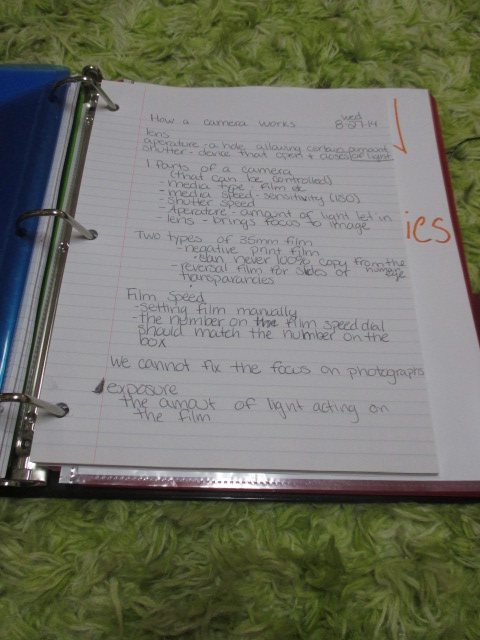 wed
How a camera works 8-27-14
lens
aperature - a hole allowing certain amount
shutter - device that opens + closes of light
1. Parts of a camera
(that can be controlled)
- media type - film
- media speed - sensitivity (ISO)
- shutter speed
- Aperature - amount of light let in
- lens - brings focus to image
Two types of 35mm film
- negative print film
· can never 100% copy from the human eye
- reversal film for slides of
transparancies
Film speed
- setting film manually
- the number on the film speed dial
should match the number on the
box
We cannot fix the focus on photographs
exposure
the amout of light acting on
the film
ies